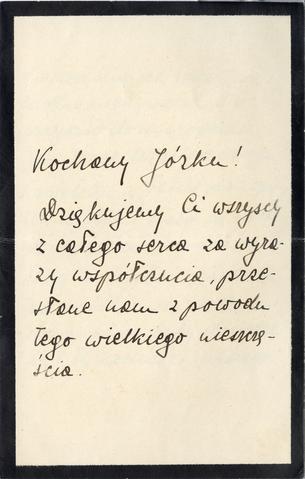 Kochany Józku!
Dziękujemy Ci wszyscy
z całego serca za wyra-
zy współczucia, prze-
słane nam z powodu
tego wielkiego nieszczę-
ścia.